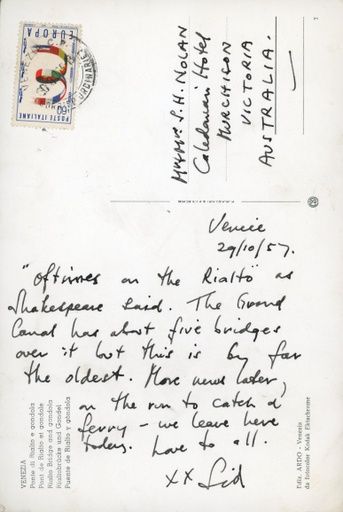 Venice
29/10/57.
"Oftimes on the Rialto" as
Shakespeare said. The Grand
Canal has about five bridges
over it but this is by far
the oldest. More news later,
on the run to catch a
ferry – we leave here
today. Love to all.
xx Sid
Mr & Mrs S. H. NOLAN
Caledonian Hotel
MURCHISON
VICTORIA
AUSTRALIA.
EUROPA
POSTE ITALIANE
VENEZIA
Ponte di Rialto e gondola
Pont de Rialto et gondole
Rialto Bridge and gondola
Rialtobrücke und Gondel
Puente de Rialto y góndola
Ediz. ARDO - Venezia
da fotocolor Kodak Ektachrome